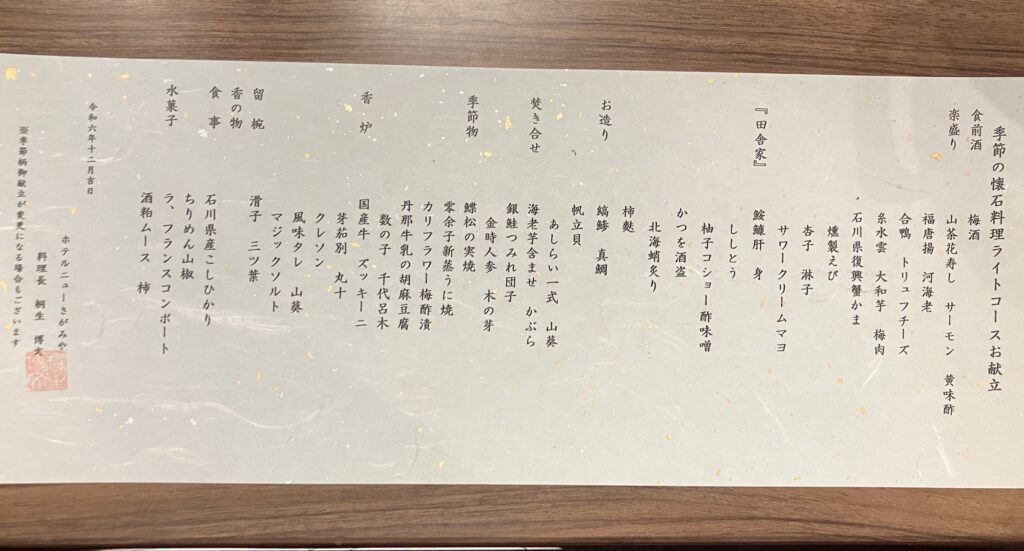 季節の懐石料理ライトコースお献立
食前酒　梅酒
楽盛り　山茶花寿し　サーモン　黄味酢
福唐揚　河海老
合鴨　トリュフチーズ
糸水雲　大和芋　梅肉
石川県復興蟹かま
燻製えび
杏子　淋子
サワークリームマヨ
『田舎家』　鮟鱇肝　身
ししとう
柚子コショー酢味噌
かつを酒盗
北海蛸炙り
柿麩
お造り　縞鯵　真鯛
帆立貝
あしらい一式　山葵
焚き合せ　海老芋含ませ　かぶら
銀鮭つみれ団子
金時人参　木の芽
季節物　鰈松の実焼
零余子新蒸うに焼
カリフラワー梅酢漬
丹那牛乳の胡麻豆腐
数の子　千代呂木
香炉　国産牛　ズッキーニ
芽茄別　丸十
クレソン
風味タレ　山葵
マジックソルト
留椀　滑子　三ツ葉
香の物
食事　石川県産こしひかり
ちりめん山椒
水菓子　ラ、フランスコンポート
酒粕ムース　柿
令和六年十二月吉日
ホテルニューさがみや
料理長　桐生　博文
※季節柄御献立が変更になる場合もございます